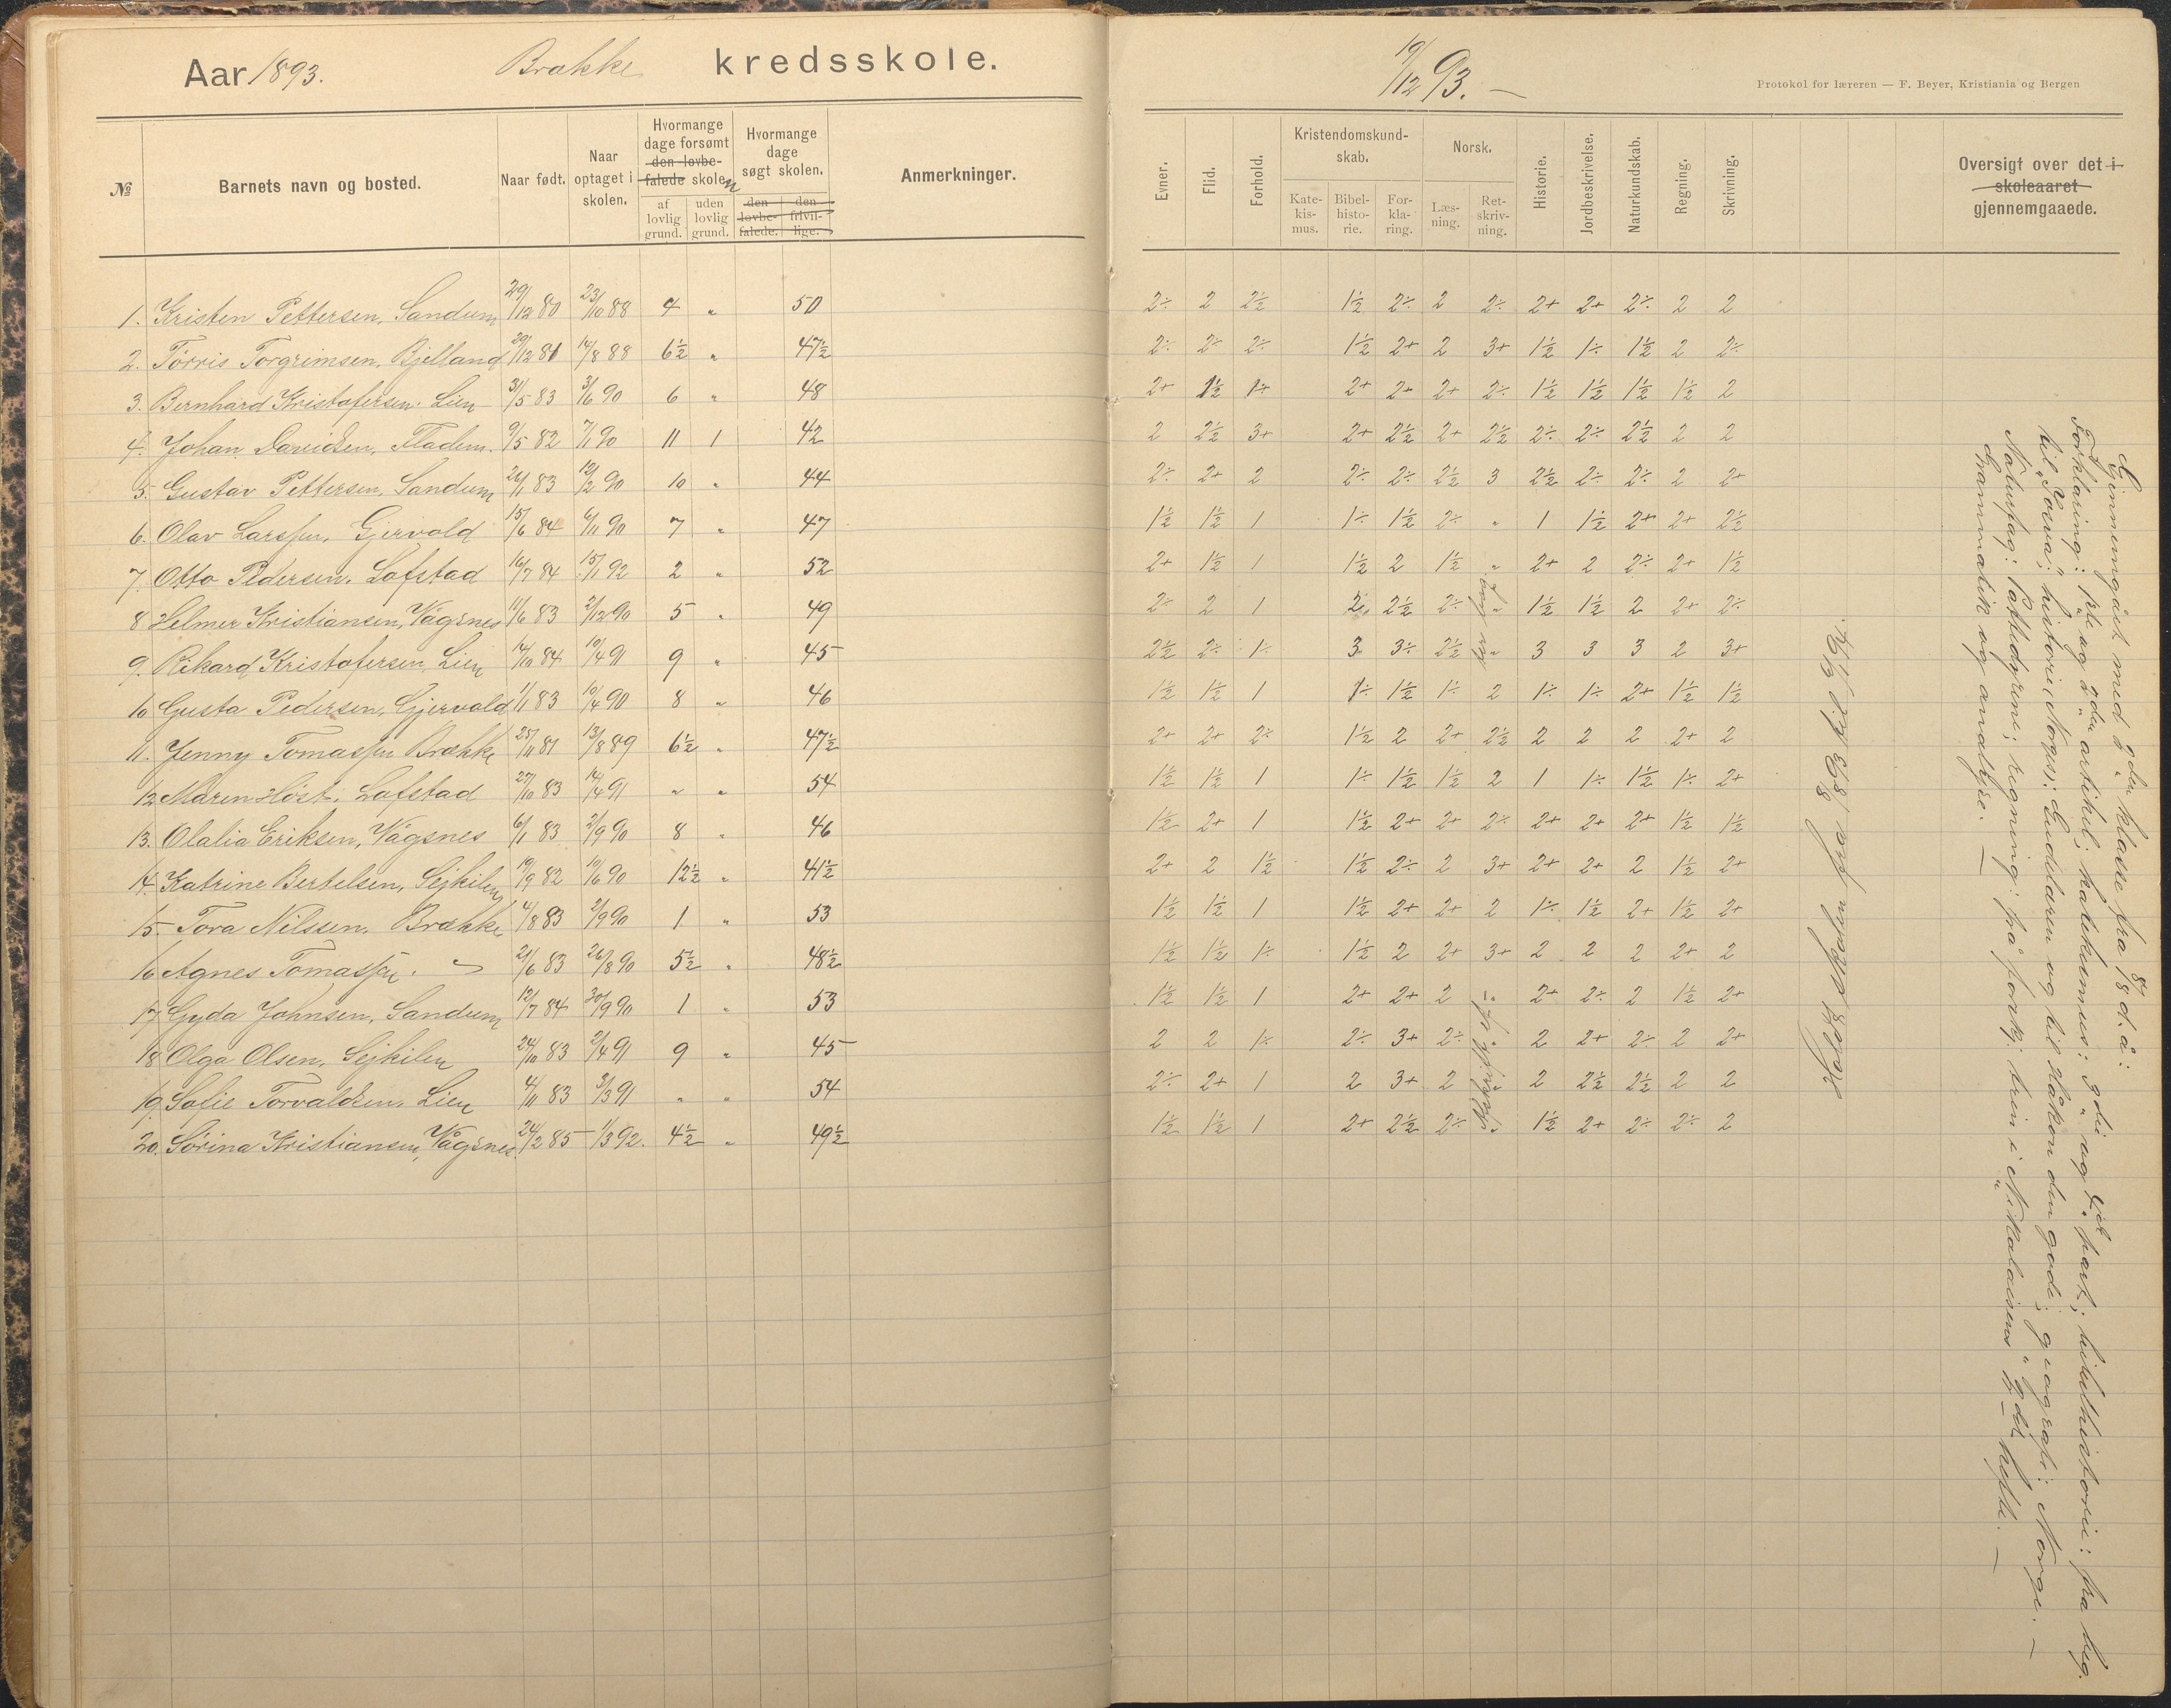 Aar 1893. Brække kredsskole.
№ Barnets navn og bosted. Naar født. Naar optaget i skolen. Hvormange dage forsømt den lovbefalede skolen af lovlig grund. uden lovlig grund. Hvormange dage søgt skolen. den lovbefalede. den frivillige. Anmerkninger.
1. Kristen Pettersen, Sandum 29/12 80 23/10 88 4 " 50
2. Tørris Torgrimsen, Bjelland 29/12 81 14/8 88 6½ " 47½
3. Bernhard Kristofersen. Lien 31/5 83 3/6 90 6 " 48
4. Johan Davidsen, Fladem. 9/5 82 7/1 90 11 1 42
5. Gustav Pettersen, Sandum 24/1 83 12/2 90 10 " 44
6. Olav Larssen, Gjervold 15/6 84 6/11 90 7 " 47
7. Otto Pedersen. Lofstad 16/7 84 15/1 92 2 " 52
8 Helmer Kristiansen, Vågsnes 11/6 83 2/12 90 5 " 49
9. Rikard Kristofersen, Lien 14/10 84 10/4 91 9 " 45
10 Gusta Pedersen, Gjervold 1/1 83 10/4 90 8 " 46
11. Jenny Tomassen Brække 25/11 81 13/8 89 6½ " 47½
12 Maren Høst, Lofstad 27/10 83 14/4 91 " " 54
13. Olalia Eriksen, Vågsnes 6/1 83 2/9 90 8 " 46
14. Katrine Bertelsen, Sejkilen 19/9 82 10/6 90 12½ " 41½
15. Tora Nilssen, Brække 4/8 83 2/9 90 1 " 53
16 Agnes Tomassen. " 21/6 83 26/8 90 5½ " 48½
17 Gyda Johnsen, Sandum 12/7 84 30/9 90 1 " 53
18 Olga Olsen, Sejkilen 24/10 83 2/4 91 9 " 45
19. Sofie Torvaldsen, Lien 4/11 83 3/3 91 " " 54
20. Sørina Kristiansen, Vågsnes. 24/2 85 1/3 92. 4½ " 49½
19/12 93. —
Protokol for læreren — F. Beyer, Kristiania og Bergen
Evner. Flid. Forhold. Kristendomskundskab. Katekismus. Bibelhistorie. Forklaring. Norsk. Læsning. Retskrivning. Historie. Jordbeskrivelse. Naturkundskab. Regning. Skrivning. Oversigt over det i skoleaaret gjennemgaaede.
2÷ 2 2½ 1½ 2÷ 2 2÷ 2+ 2+ 2÷ 2 2
2÷ 2÷ 2÷ 1½ 2+ 2 3+ 1½ 1÷ 1½ 2 2÷
2+ 1½ 1÷ 2+ 2+ 2+ 2÷ 1½ 1½ 1½ 1½ 2
2 2½ 3+ 2+ 2½ 2+ 2½ 2÷ 2÷ 2½ 2 2
2÷ 2+ 2 2÷ 2÷ 2½ 3 2½ 2÷ 2÷ 2 2+
1½ 1½ 1 1÷ 1½ 2÷ " 1 1½ 2+ 2+ 2½
2+ 1½ 1 1½ 2 1½ " 2+ 2 2÷ 2+ 1½
2÷ 2 1 2. 2½ 2÷ " 1½ 1½ 2 2+ 2÷
2½ 2÷ 1÷ 3 3÷ 2½ " 3 3 3 2 3+
1½ 1½ 1 1÷ 1½ 1÷ 2 1÷ 1÷ 2+ 1½ 1½
2+ 2+ 2÷ 1½ 2 2+ 2½ 2 2 2 2+ 2
1½ 1½ 1 1÷ 1½ 1½ 2 1 1÷ 1½ 1÷ 2+
1½ 2+ 1 1½ 2+ 2+ 2÷ 2+ 2+ 2+ 1½ 1½
2+ 2 1½ 1½ 2÷ 2 3+ 2+ 2+ 2 1½ 2+
1½ 1½ 1 1½ 2+ 2+ 2 1÷ 1½ 2+ 1½ 2+
1½ 1½ 1÷ 1½ 2 2+ 3+ 2 2 2 2+ 2
1½ 1½ 1 2+ 2+ 2 " 2+ 2÷ 2 1½ 2+
2 2 1÷ 2÷ 3+ 2÷ 2 2+ 2÷ 2 2+
2÷ 2+ 1 2 3+ 2 " 2 2½ 2½ 2 2
1½ 1½ 1 2+ 2½ 2÷ " 1½ 2+ 2÷ 2÷ 2
Gjennemgået med 2den klasse fra 8/8 d. å:
Forklaring: 1ste og 2den artikel; katekismus: 3die og 4de part; bibelhistorie: fra beg.
til historie (Norges): til Håkon den gode; geografi: Norge. —
Naturfag: Pattedyrene; regning: hefte. —
Grammatik og analyse. —
Holdt skolen fra 8/8 93 til